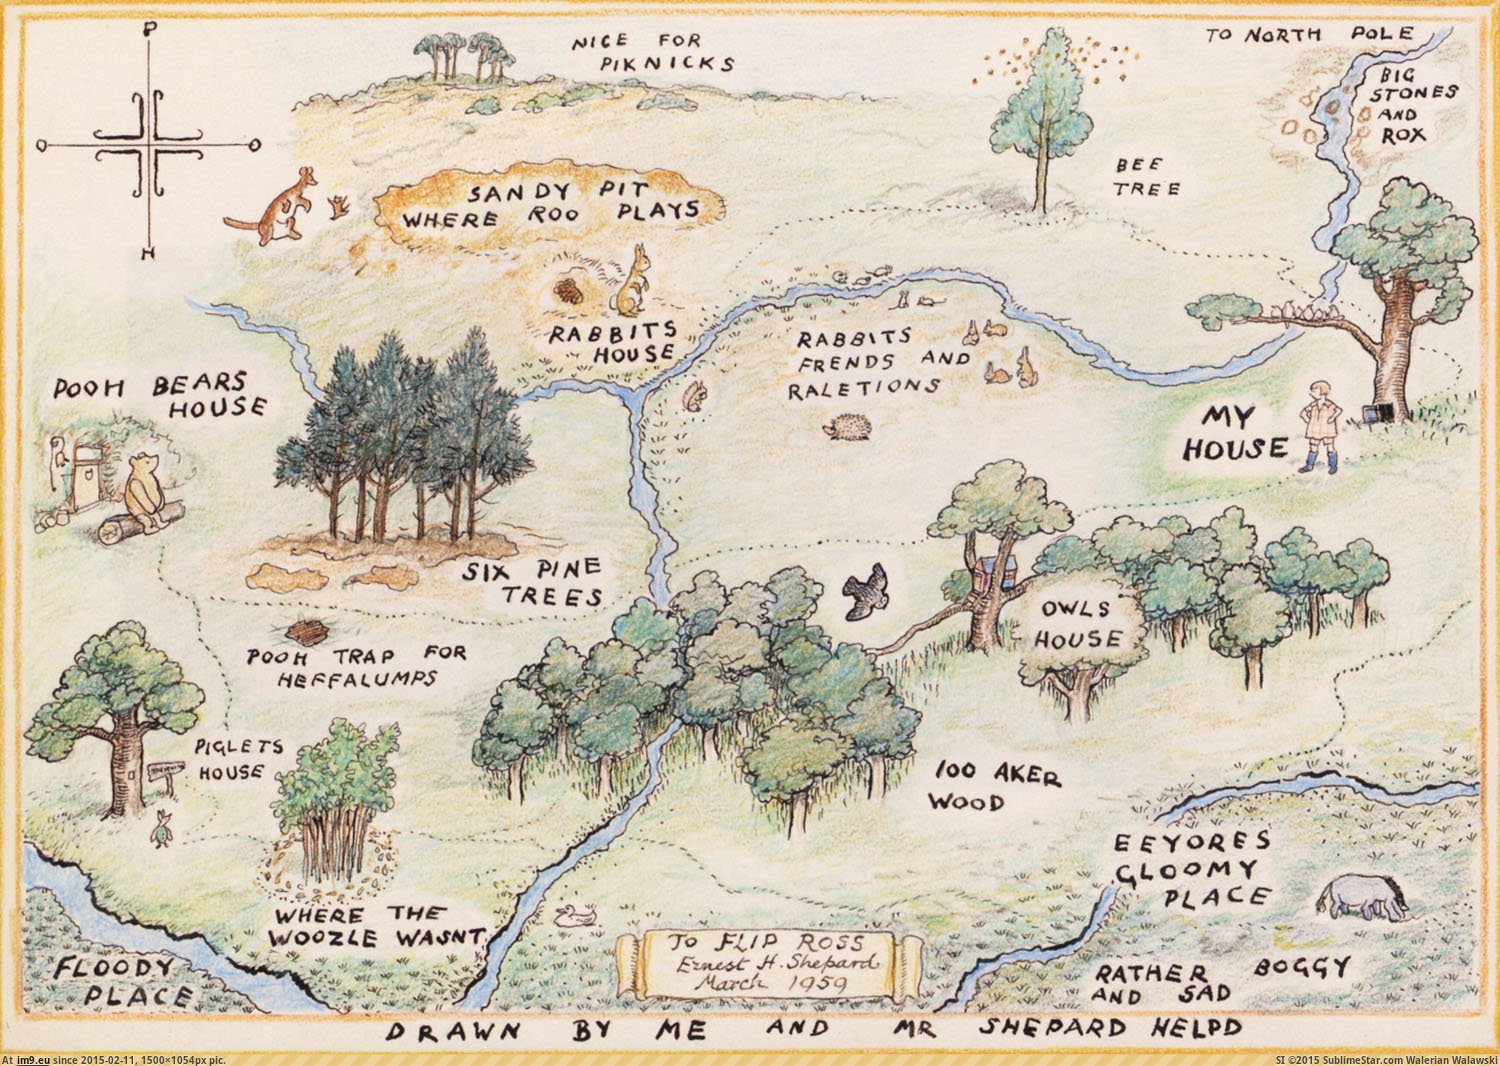 P
O
O
H
NICE FOR
PIKNICKS
TO NORTH POLE
BIG
STONES
AND
ROX
BEE
TREE
SANDY PIT
WHERE ROO PLAYS
RABBITS
HOUSE
RABBITS
FRENDS AND
RALETIONS
POOH BEARS
HOUSE
MY
HOUSE
SIX PINE
TREES
OWLS
HOUSE
POOH TRAP FOR
HEFFALUMPS
PIGLETS
HOUSE
100 AKER
WOOD
EEYORES
GLOOMY
PLACE
WHERE THE
WOOZLE WASNT
FLOODY
PLACE
TO FLIP ROSS
Ernest H. Shepard
March 1959
RATHER BOGGY
AND SAD
DRAWN BY ME AND MR SHEPARD HELPD
At im9.eu since 2015-02-11, 1500×1054px pic.
SI ©2015 SublimeStar.com Walerian Walawski